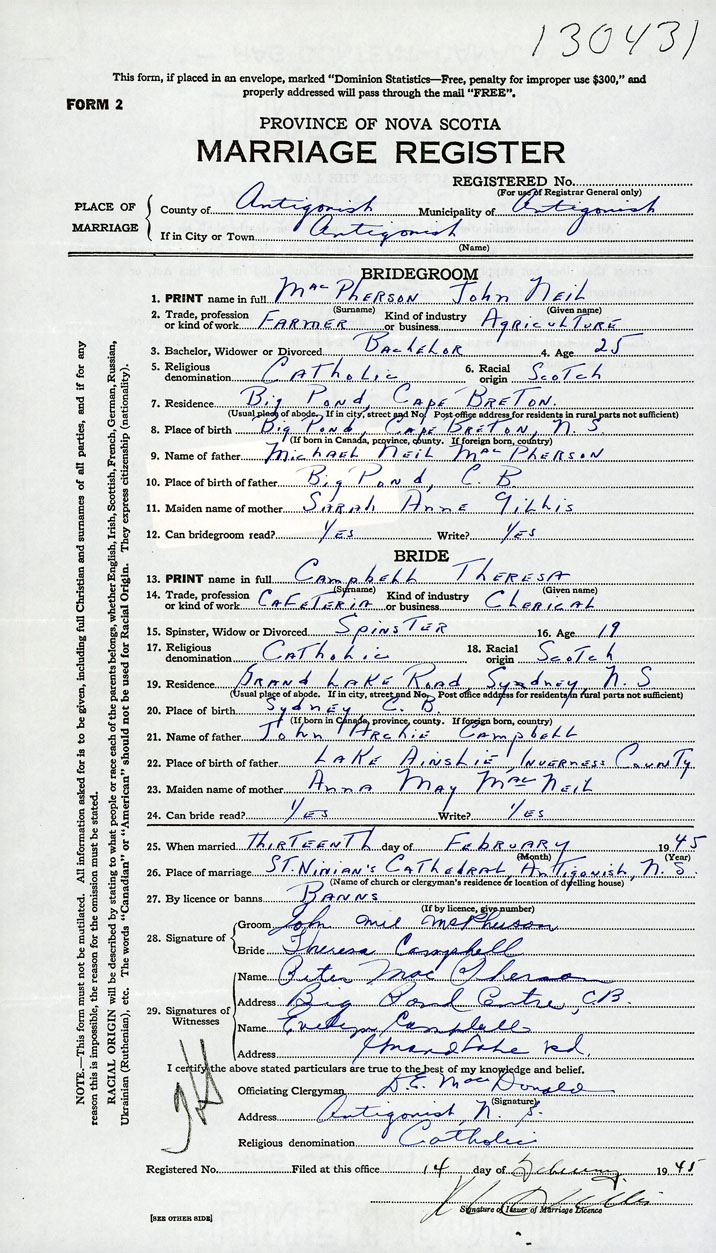 130431
This form, if placed in an envelope, marked "Dominion Statistics—Free, penalty for improper use $300," and
properly addressed will pass through the mail "FREE".
FORM 2
PROVINCE OF NOVA SCOTIA
MARRIAGE REGISTER
REGISTERED No.
(For use of Registrar General only)
PLACE OF MARRIAGE
County of Antigonish Municipality of Antigonish
If in City or Town Antigonish
(Name)
BRIDEGROOM
1. PRINT name in full MacPherson John Neil
(Surname) (Given name)
2. Trade, profession or kind of work Farmer Kind of industry or business Agriculture
3. Bachelor, Widower or Divorced Bachelor 4. Age 25
5. Religious denomination Catholic 6. Racial origin Scotch
7. Residence Big Pond, Cape Breton.
(Usual place of abode. If in city, street and No. Post office address for residents in rural parts not sufficient)
8. Place of birth Big Pond, Cape Breton, N. S.
(If born in Canada, province, county. If foreign born, country)
9. Name of father Michael Neil MacPherson
10. Place of birth of father Big Pond, C. B
11. Maiden name of mother Sarah Anne Gillis
12. Can bridegroom read? Yes Write? Yes
BRIDE
13. PRINT name in full Campbell Theresa
(Surname) (Given name)
14. Trade, profession or kind of work Cafeteria Kind of industry or business Clerical
15. Spinster, Widow or Divorced Spinster 16. Age 19
17. Religious denomination Catholic 18. Racial origin Scotch
19. Residence Grand Lake Road Sydney, N. S
(Usual place of abode. If in city, street and No. Post office address for residents in rural parts not sufficient)
20. Place of birth Sydney, C. B.
(If born in Canada, province, county. If foreign born, country)
21. Name of father John Archie Campbell
22. Place of birth of father Lake Ainslie Inverness County
23. Maiden name of mother Anna May MacNeil
24. Can bride read? Yes Write? Yes
25. When married Thirteenth day of February 1945
(Month) (Year)
26. Place of marriage St. Ninian's Cathedral, Antigonish, N. S.
(Name of church or clergyman's residence or location of dwelling house)
27. By licence or banns Banns
(If by licence, give number)
28. Signature of
Groom John Neil McPherson
Bride Theresa Campbell
29. Signatures of Witnesses
Name Peter MacPherson
Address Big Pond Centre, C.B.
Name Evelyn Campbell
Address Grand Lake Rd.
I certify the above stated particulars are true to the best of my knowledge and belief.
Officiating Clergyman D.E. MacDonald
(Signature)
Address Antigonish, N. S.
Religious denomination Catholic
Registered No. Filed at this office 14 day of February 1945
Signature of Issuer of Marriage Licence
[SEE OTHER SIDE]
NOTE.—This form must not be mutilated. All information asked for is to be given, including full Christian and surnames of all parties, and if for any
reason this is impossible, the reason for the omission must be stated.
RACIAL ORIGIN will be described by stating to what people or race each of the parents belongs, whether English, Irish, Scottish, French, German, Russian,
Ukrainian (Ruthenian), etc. The words "Canadian" or "American" should not be used for Racial Origin. They express citizenship (nationality).